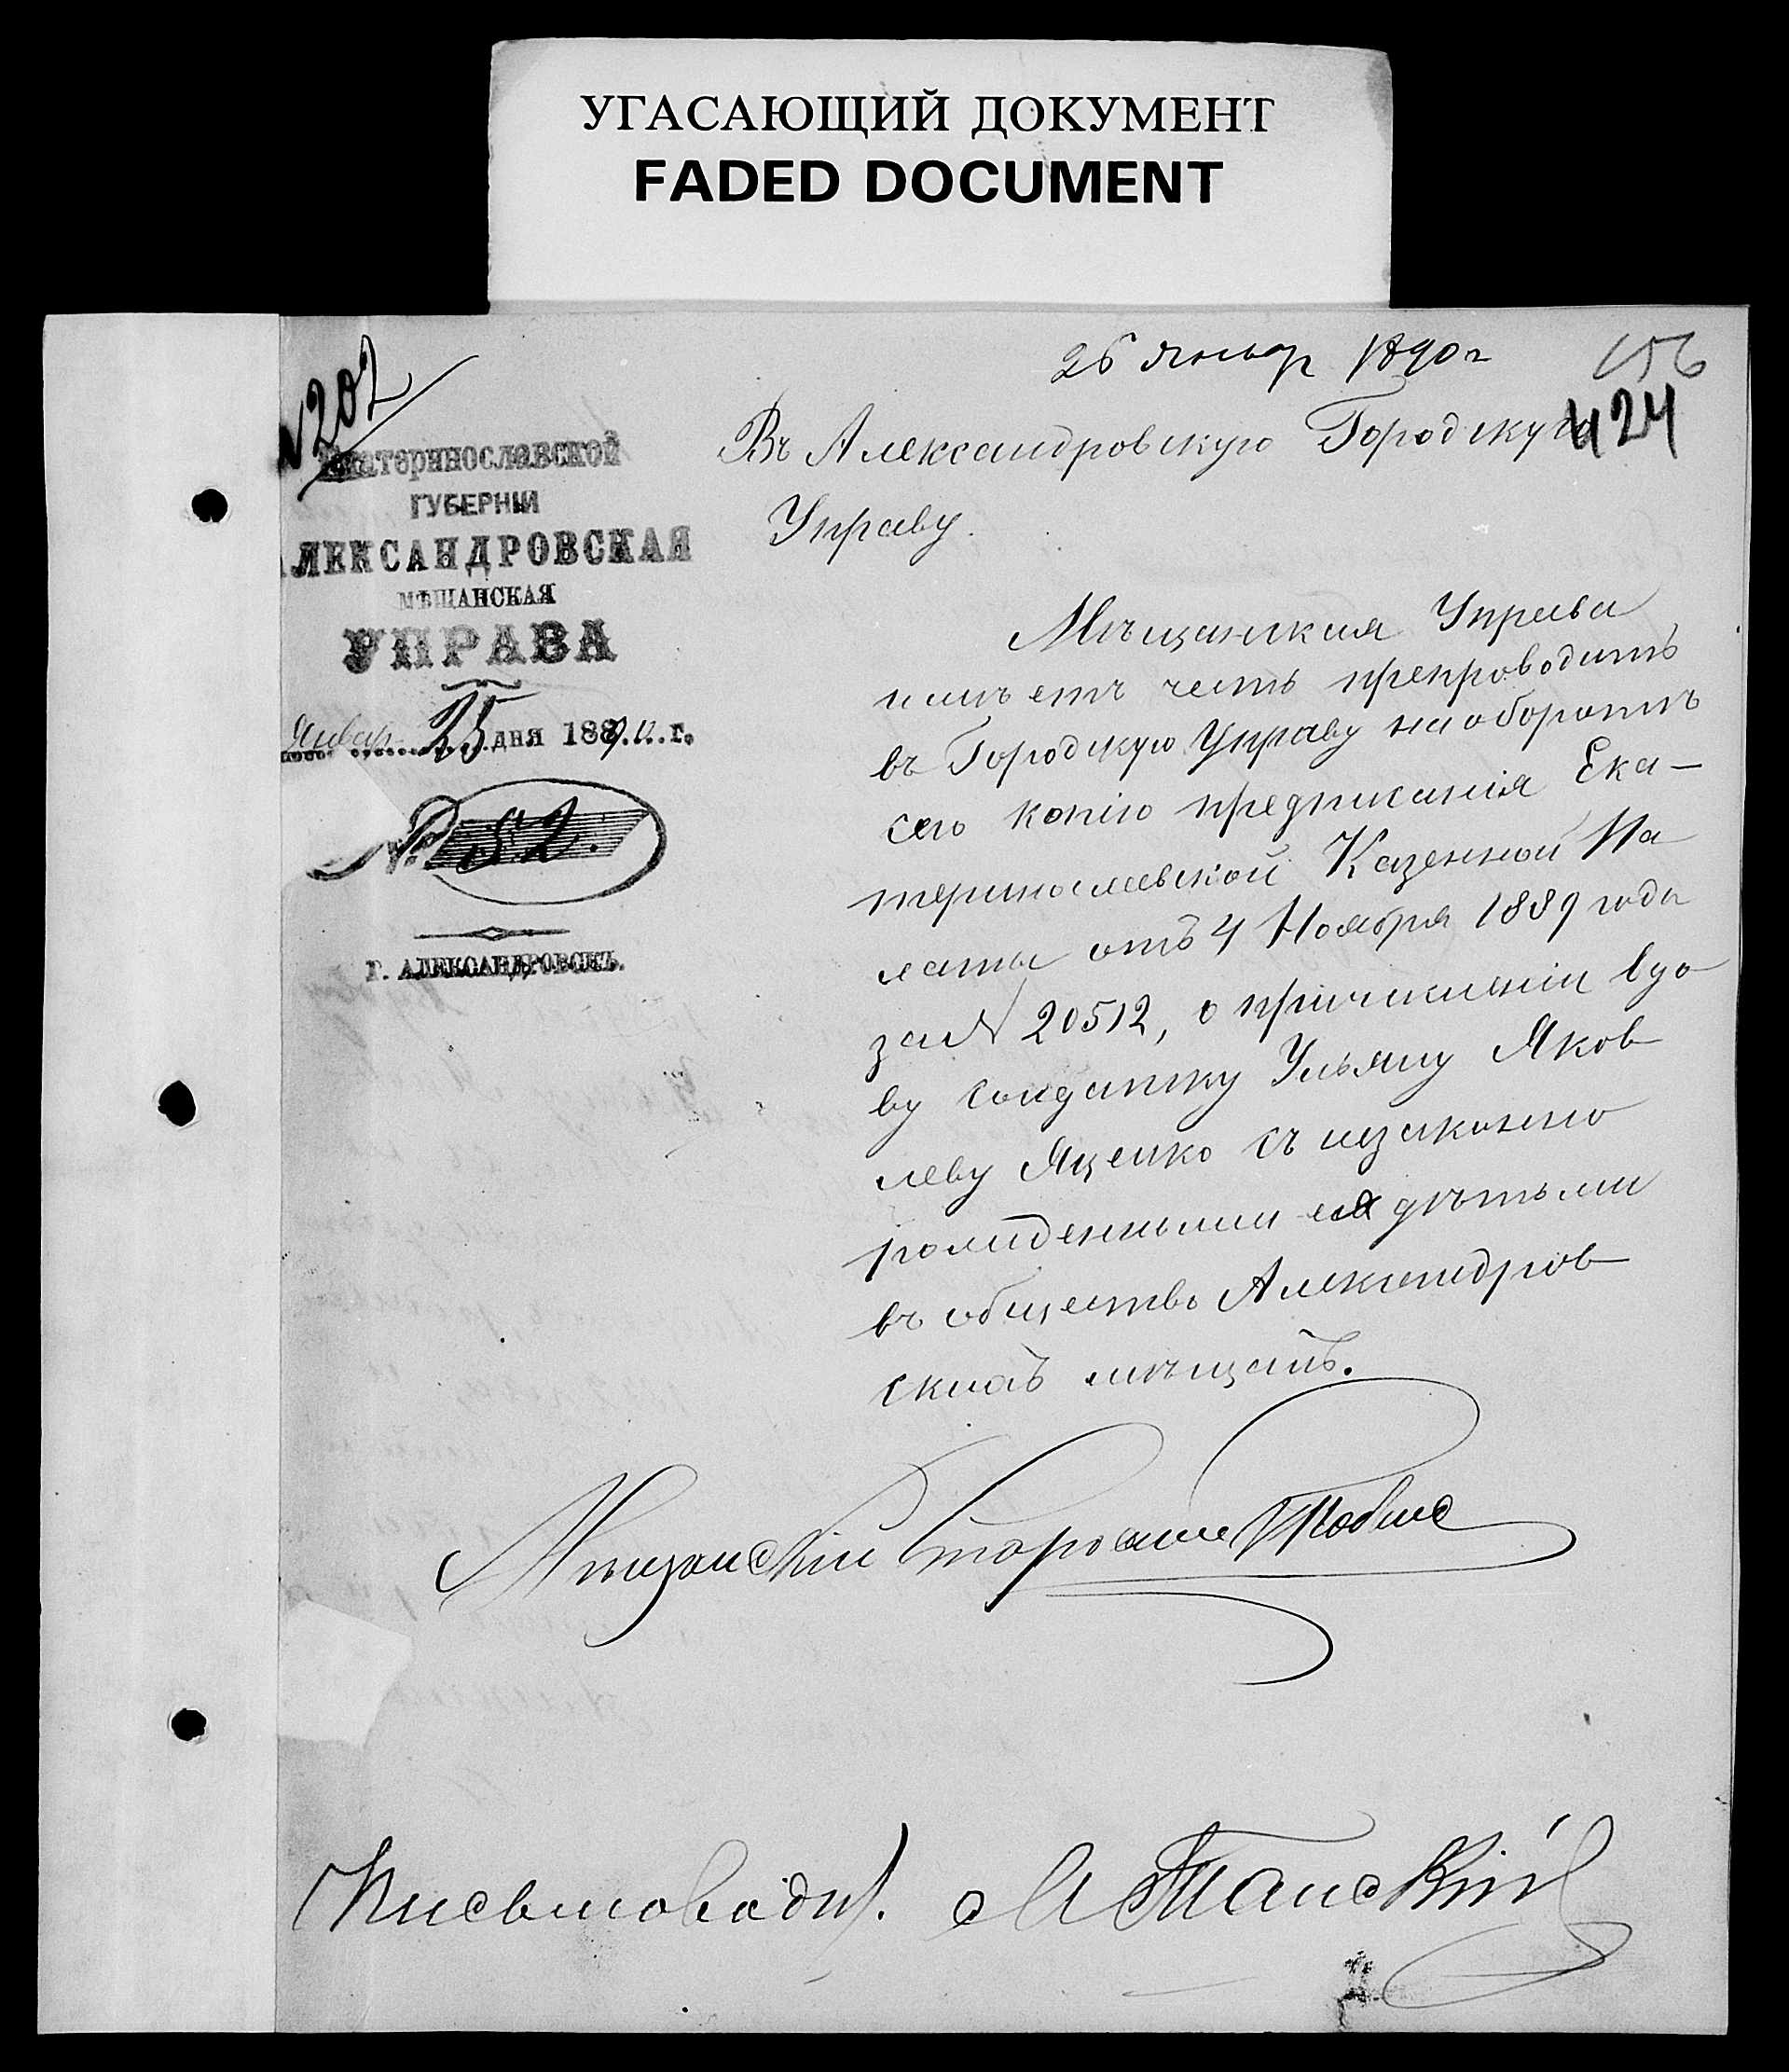 УГАСАЮЩИЙ ДОКУМЕНТ
FADED DOCUMENT
26 Январ 1890 г
156
424
№202
Екатеринославской
ГУБЕРНІИ
АЛЕКСАНДРОВСКАЯ
МѢЩАНСКАЯ
УПРАВА
Январ 25 дня 1890 г.
№ 82.
Г. АЛЕКСАНДРОВСКЪ.
Въ Александровскую Городскую
Управу.
Мѣщанская Управа
имѣетъ честь препроводить
въ Городскую Управу на оборотѣ
сего копію предписанія Ека-
теринославской Казенной Па
латы отъ 4 Ноября 1889 года
за № 20512, о причисленіи вдо
ву солдатку Ульяну Яков
леву Яценко съ незаконно
рожденными ея дѣтьми
въ общество Александров
скихъ мѣщанъ.
Мѣщанскій Староста
Письмоводит.